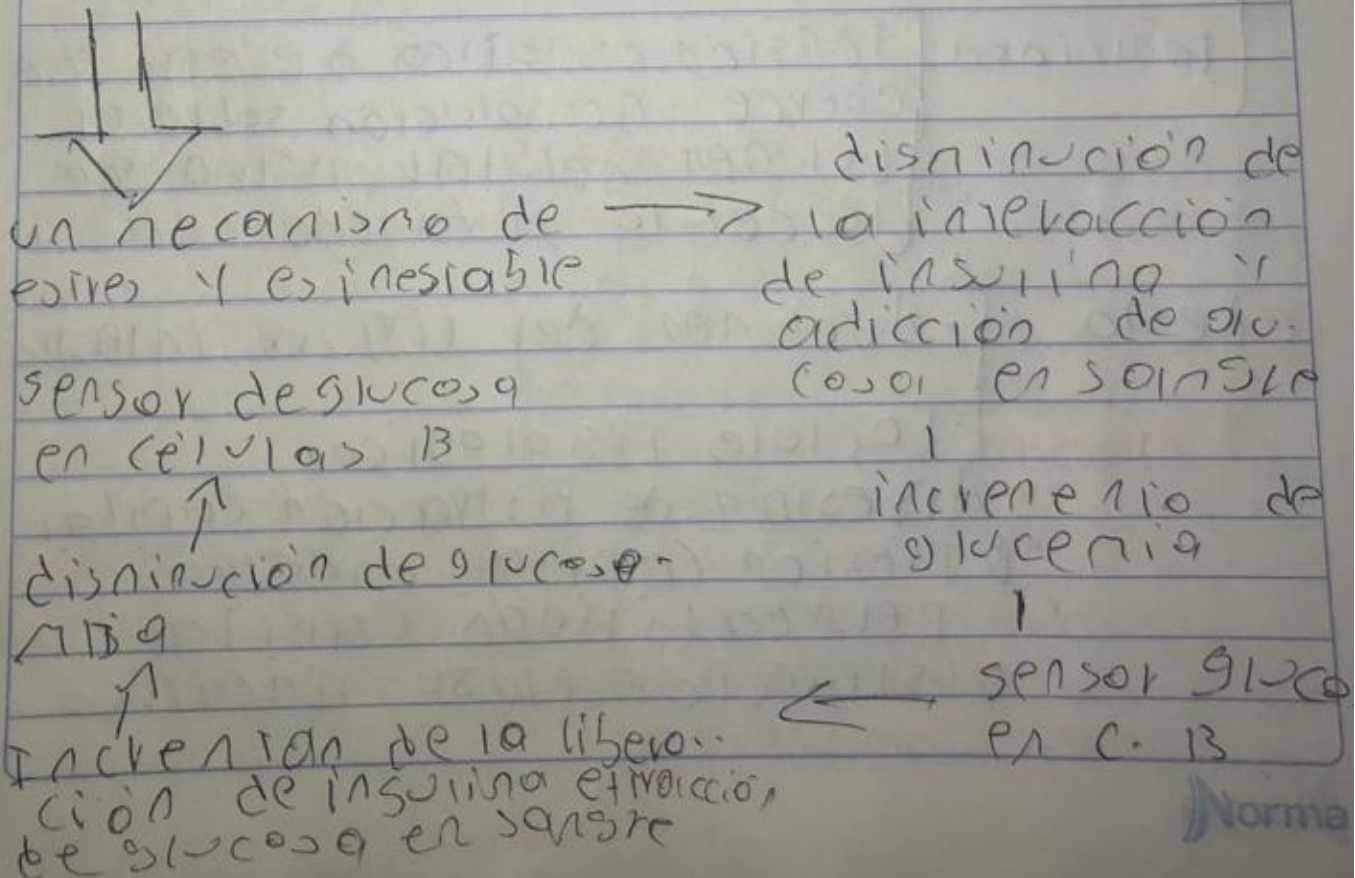 un mecanismo de
estres y es inestable
sensor de glucosa
en células B
disminución de glucose-
mia
Incrementan de la libera..
ción de insulina extracción,
de glucosa en sangre
disminución de
la interacción
de insulina y
adicción de glu.
cosa en sangre
incremento de
glucemia
sensor gluco
en C. B
Norma